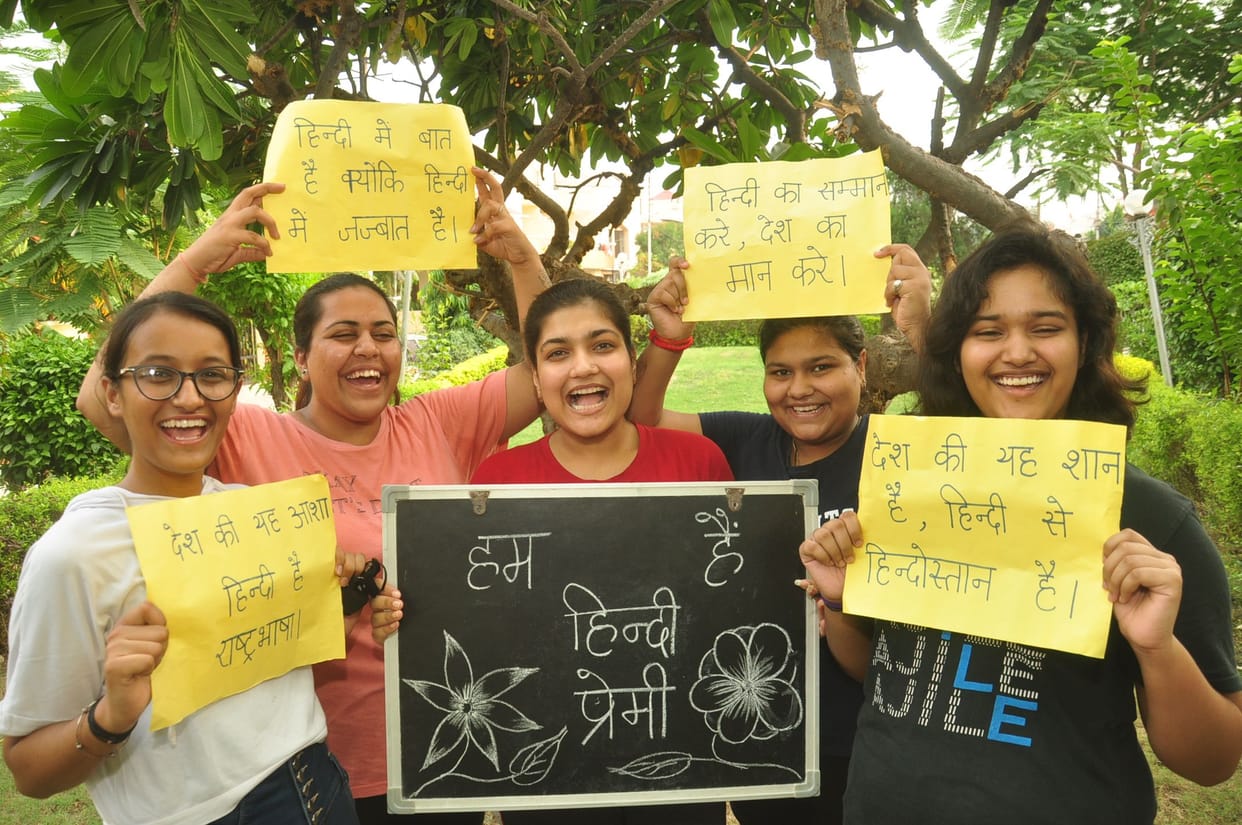 हिन्दी में बात
है क्योंकि हिन्दी
में जज्बात है।
हिन्दी का सम्मान
करे, देश का
मान करे।
देश की यह आशा
हिन्दी है
राष्ट्रभाषा।
हम हैं
हिन्दी
प्रेमी
देश की यह शान
है, हिन्दी से
हिन्दोस्तान है।